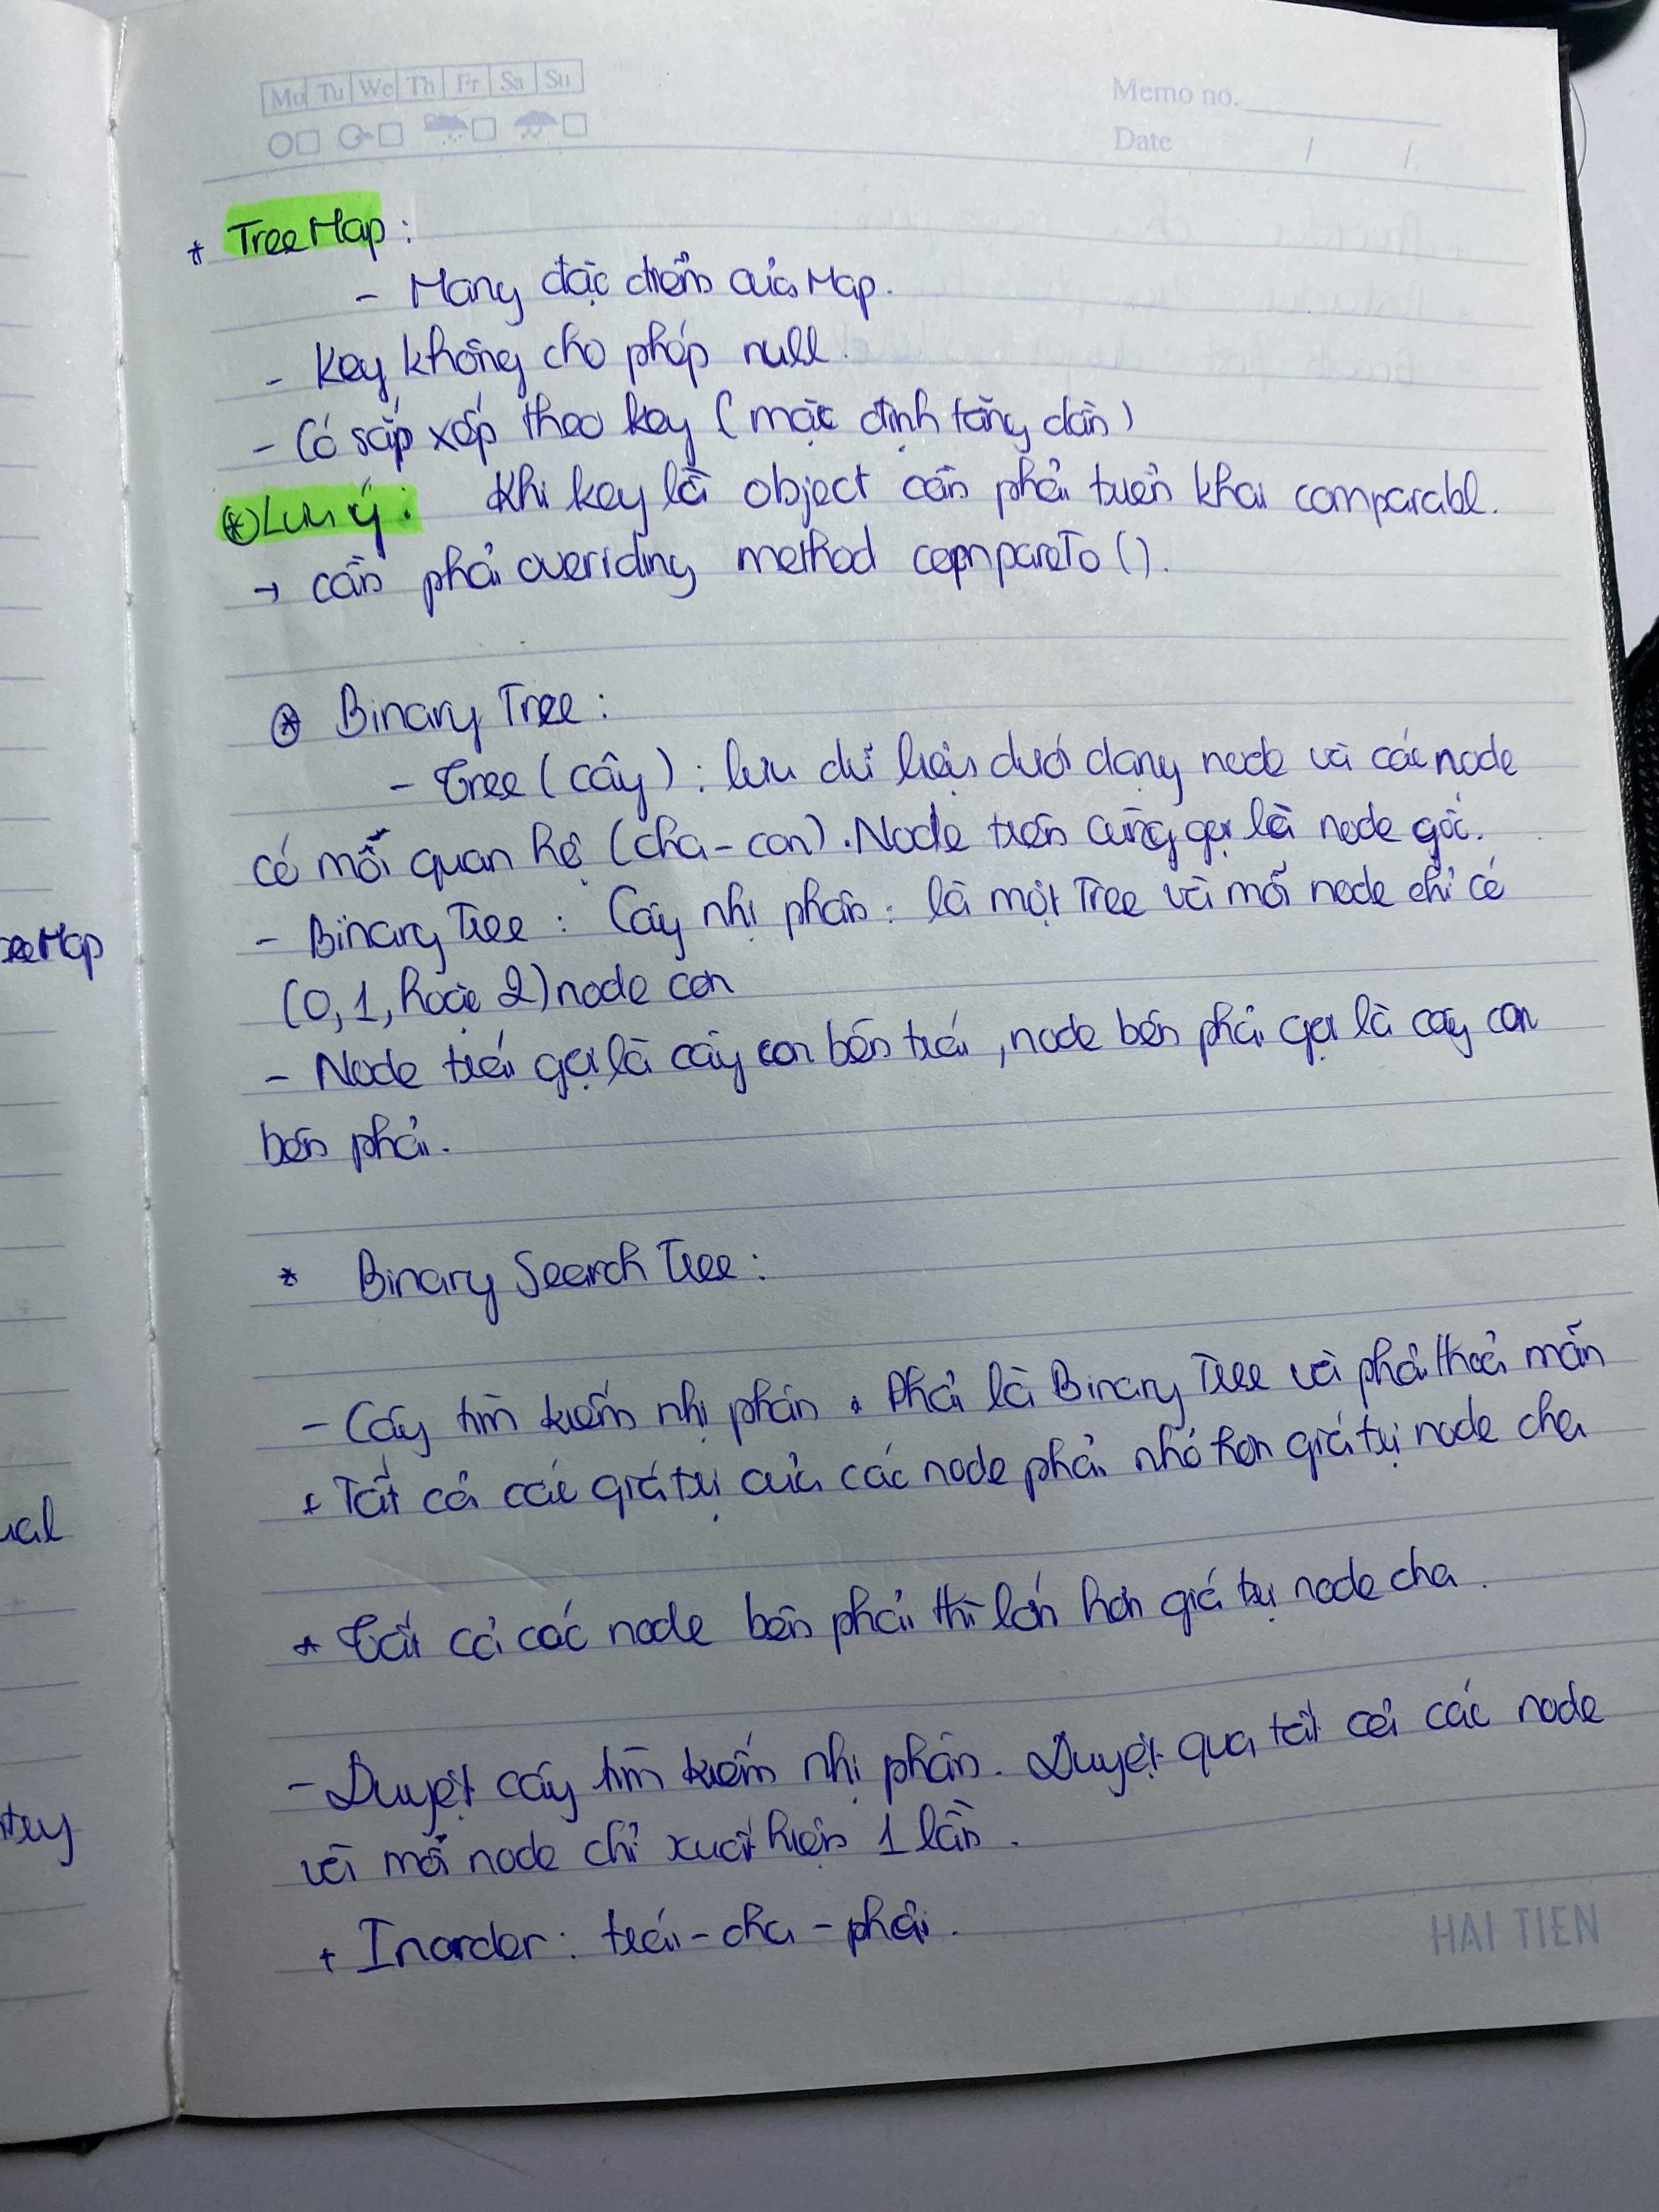 Mo Tu We Th Fr Sa Su
Memo no.
Date / /
* TreeMap :
- Mang đặc điểm của Map.
- Key không cho phép null.
- Có sắp xếp theo key (mặc định tăng dần)
* Lưu ý : Khi key là object cần phải triển khai comparabl.
→ cần phải overiding method compareTo ().
* Binary Tree :
- Tree (cây) : lưu dữ liệu dưới dạng node và các node
có mối quan hệ (cha - con). Node trên cùng gọi là node gốc.
- Binary Tree : Cây nhị phân : là một Tree và mỗi node chỉ có
(0, 1, hoặc 2) node con
- Node trái gọi là cây con bên trái, node bên phải gọi là cây con
bên phải.
* Binary Search Tree :
- Cây tìm kiếm nhị phân . Phải là Binary Tree và phải thoả mãn
+ Tất cả các giá trị của các node phải nhỏ hơn giá trị node cha
* Tất cả các node bên phải thì lớn hơn giá trị node cha.
- Duyệt cây tìm kiếm nhị phân. Duyệt qua tất cả các node
và mỗi node chỉ xuất hiện 1 lần.
+ Inorder : trái - cha - phải.
HAI TIEN
eeMap
ual
try